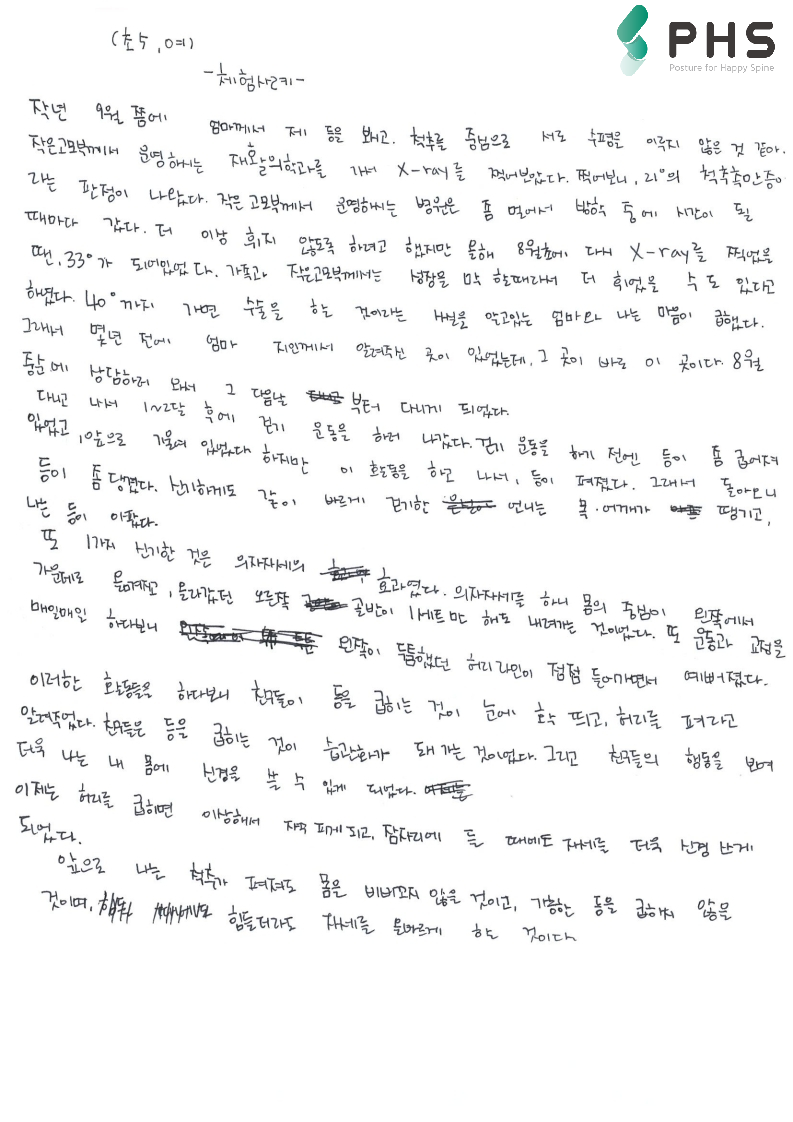 PHS
Posture for Happy Spine
(초5, 여)
-체험사례-
작년 9월 쯤에 엄마께서 제 등을 봐시고. 척추를 중심으로 서로 수평을 이루지 않은 것 같아.
작은고모부께서 운영하시는 재활의학과를 가서 X-ray를 찍어보았다. 찍어보니, 21°의 척추측만증이
라는 판정이 나왔다. 작은 고모부께서 운영하시는 병원은 좀 멀어서 방학 중에 시간이 될
때마다 갔다. 더 이상 휘지 않도록 하려고 했지만 올해 8월초에 다시 X-ray를 찍었을
땐, 33°가 되어있었다. 가족과 작은고모부께서는 성장을 막 할때라서 더 휘었을 수 도 있다고
하셨다. 40°까지 가면 수술을 하는 것이라는 사실을 알고있는 엄마와 나는 마음이 급했다.
그래서 몇년 전에 엄마 지인께서 알려주신 곳이 있었는데, 그 곳이 바로 이 곳이다. 8월
중순에 상담하러 와서 그 다음날 부터 다니게 되었다.
다니고 나서 1~2달 후에 걷기 운동을 하러 나갔다. 걷기 운동을 하기 전엔 등이 좀 굽어져
있었고, 앞으로 기울여 있었다 하지만 이 활동을 하고 나서, 등이 펴졌다. 그래서 돌아오니
등이 좀 당겼다. 신기하게도 같이 바르게 걷기한 언니는 목·어깨가 땡기고,
나는 등이 아팠다.
또 1가지 신기한 것은 의자자세의 효과였다. 의자자세를 하니 몸의 중심이 왼쪽에서
가운데로 옮겨졌고, 올라갔던 오른쪽 골반이 1세트만 해도 내려가는 것이었다. 또 운동과 교정을
매일매일 하다보니 왼쪽이 두툼했던 허리라인이 점점 들어가면서 예뻐졌다.
이러한 활동들을 하다보니 친구들이 등을 굽히는 것이 눈에 확 띄고, 허리를 펴라고
알려주었다. 친구들은 등을 굽히는 것이 습관화가 돼 가는 것이었다. 그리고 친구들의 행동을 보며
더욱 나는 내 몸에 신경을 쓸 수 있게 되었다.
이제는 허리를 굽히면 이상해서 쟈꾸 피게 되고, 잠자리에 들 때에도 자세를 더욱 신경 쓰게
되었다.
앞으로 나는 척추가 펴져도 몸을 비비꼬지 않을 것이고, 가능한 등을 굽히지 않을
것이며, 힘들더라도 자세를 올바르게 하는 것이다